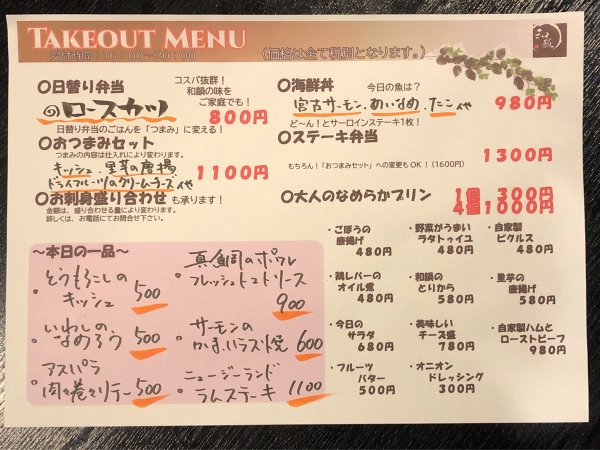 TAKEOUT MENU
受付時間：16：00～20：00
(価格は全て税別となります。)
和韻
〇日替り弁当
コスパ抜群！
和韻の味を
ご家庭でも！
のロースカツ
800円
日替り弁当のごはんを「つまみ」に変える！
〇おつまみセット
つまみの内容は仕入れにより変わります。
キッシュ、里芋の唐揚
ドライフルーツのクリームチーズ、他
1100円
〇お刺身盛り合わせも承ります！
金額は、盛り合わせる量により変わります。
詳しくは、お電話にてお問合せ下さい。
〇海鮮丼
今日の魚は？
宮古サーモン、あいなめ、たこ 他
980円
ど～ん！とサーロインステーキ1枚！
〇ステーキ弁当
1300円
もちろん！「おつまみセット」への変更もOK！(1600円)
〇大人のなめらかプリン
1個 300円
4個1000円
～本日の一品～
とうもろこしの
キッシュ 500
いわしの
なめろう 500
アスパラ
肉巻きソテー 500
真鯛のポワレ
フレッシュトマトソース
900
サーモンの
かま、ハラス焼 600
ニュージーランド
ラムステーキ 1100
・ごぼうの
唐揚げ
480円
・野菜がうまい
ラタトゥイユ
480円
・自家製
ピクルス
480円
・鶏レバーの
オイル煮
480円
・和韻の
とりから
580円
・里芋の
唐揚げ
580円
・今日の
サラダ
680円
・美味しい
チーズ盛
780円
・自家製ハムと
ローストビーフ
980円
・フルーツ
バター
500円
・オニオン
ドレッシング
300円